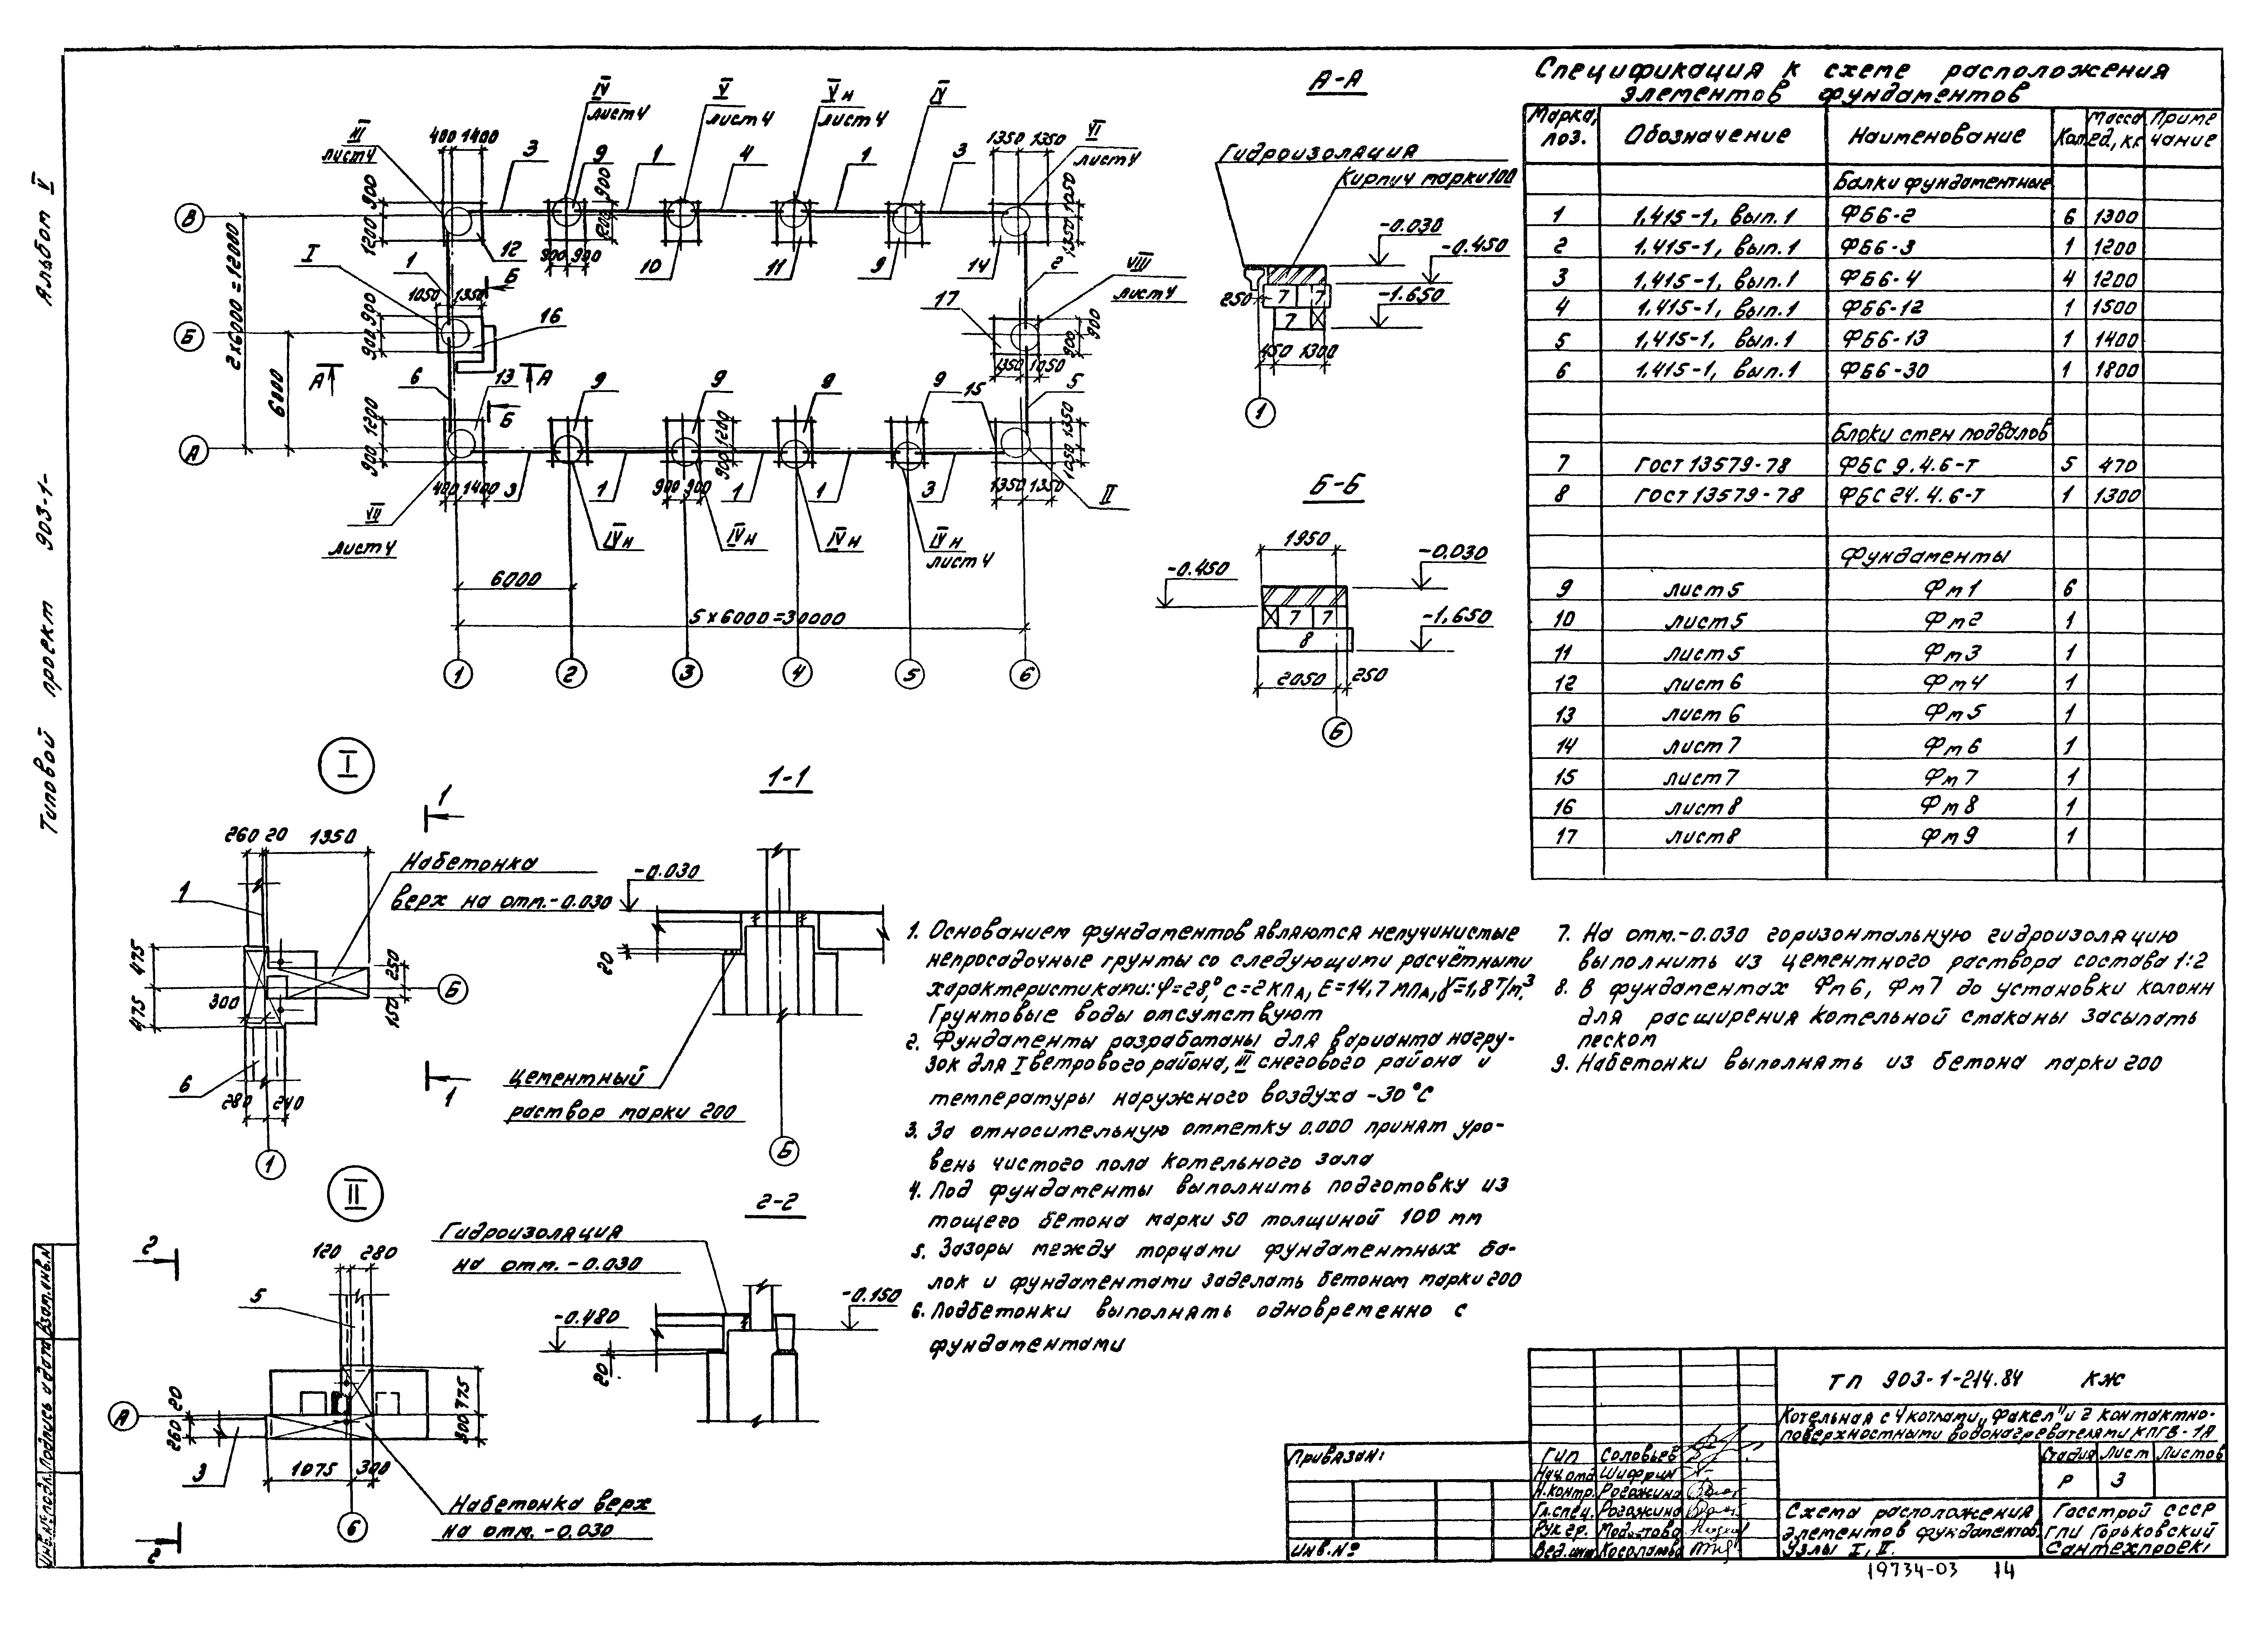 Альбом V
Типовой проект 903-1-
Инв.№подл. Подпись и дата Взам.инв.№
III
лист 4
IV
лист 4
V
лист 4
Vн
лист 4
IV
VI
лист 4
400 1400
3
9
1
4
1
3
1350 1350
900
1200
900
1200
1050
1350
В
12
900 900
10
11
9
14
2
VIII
лист 4
I
1
Б
1050 1350
17
2×6000=12000
900
900
16
900
900
Б
6000
1350 1050
А
А
6
13
9
9
9
9
15
5
Б
1200
900
1200
900
1350
1050
А
400 1400
3
1
900 900
1
1
3
1350 1350
VII
лист 4
IVн
IVн
IVн
IVн
лист 4
II
6000
5×6000=30000
1
2
3
4
5
6
А-А
Гидроизоляция
Кирпич марки 100
-0.030
-0.450
250
7
7
-1.650
7
450 1300
1
Б-Б
1950
-0.030
-0.450
7 7
-1.650
8
2050
250
Б
I
1
260 20 1350
Набетонка
верх на отм.-0.030
1
475
475
250
150
Б
300
6
1
280 240
1
1-1
-0.030
20
Цементный
раствор марки 200
Б
II
2
120 280
5
А
20
260
775
300
3
1075 300
Набетонка верх
на отм.-0.030
6
2
2-2
Гидроизоляция
на отм.-0.030
-0.480
-0.150
20
Спецификация к схеме расположения
элементов фундаментов
Марка, поз. Обозначение Наименование Кол. Масса ед, кг Примечание
Балки фундаментные
1 1.415-1, вып.1 ФБ6-2 6 1300
2 1.415-1, вып.1 ФБ6-3 1 1200
3 1.415-1, вып.1 ФБ6-4 4 1200
4 1.415-1, вып.1 ФБ6-12 1 1500
5 1.415-1, вып.1 ФБ6-13 1 1400
6 1.415-1, вып.1 ФБ6-30 1 1800
Блоки стен подвалов
7 ГОСТ 13579-78 ФБС 9.4.6-Т 5 470
8 ГОСТ 13579-78 ФБС 24.4.6-Т 1 1300
Фундаменты
9 лист 5 Фм1 6
10 лист 5 Фм2 1
11 лист 5 Фм3 1
12 лист 6 Фм4 1
13 лист 6 Фм5 1
14 лист 7 Фм6 1
15 лист 7 Фм7 1
16 лист 8 Фм8 1
17 лист 8 Фм9 1
1. Основанием фундаментов являются непучинистые
непросадочные грунты со следующими расчётными
характеристиками: φ=28°, с=2кПа, Е=14,7 мПа, γ=1,8т/м³.
Грунтовые воды отсутствуют
2. Фундаменты разработаны для варианта нагру-
зок для I ветрового района, III снегового района и
температуры наружного воздуха -30°С
3. За относительную отметку 0.000 принят уро-
вень чистого пола котельного зала
4. Под фундаменты выполнить подготовку из
тощего бетона марки 50 толщиной 100 мм
5. Зазоры между торцами фундаментных ба-
лок и фундаментами заделать бетоном марки 200
6. Подбетонки выполнять одновременно с
фундаментами
7. На отм.-0.030 горизонтальную гидроизоляцию
выполнить из цементного раствора состава 1:2
8. В фундаментах Фм6, Фм7 до установки колонн
для расширения котельной стаканы засыпать
песком
9. Набетонки выполнять из бетона марки 200
Привязан:
Инв.№
ГИП Соловьев
Нач.отд Шифрин
Н.контр. Рогожина
Гл.спец. Рогожина
Рук.гр.
Вед.инж Косолапова
ТП 903-1-214.84 КЖ
Котельная с 4 котлами „Факел" и 2 контактно-
поверхностными водонагревателями КПГВ-1А
Стадия Лист Листов
Р 3
Схема расположения
элементов фундаментов.
Узлы I, II.
Госстрой СССР
ГПИ Горьковский
Сантехпроект
19734-03 14